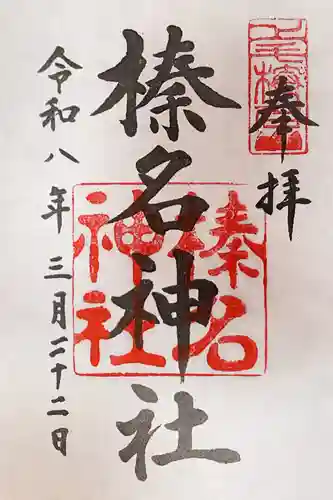 奉拝
榛名神社
令和八年三月二十二日
榛名神社